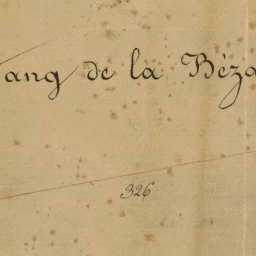 ang de la Béza
326